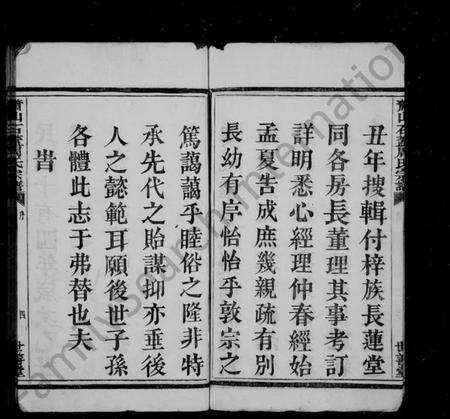 丑年搜輯付梓族長蓮堂
同各房長董理其事考訂
詳明悉心經理仲春經始
孟夏告成庶幾親疏有別
長幼有序怡怡乎敦宗之
篤藹藹乎睦俗之隆非特
承先代之貽謀抑亦垂後
人之懿範耳願後世子孫
各體此志于弗替也夫
旹
四
世善堂